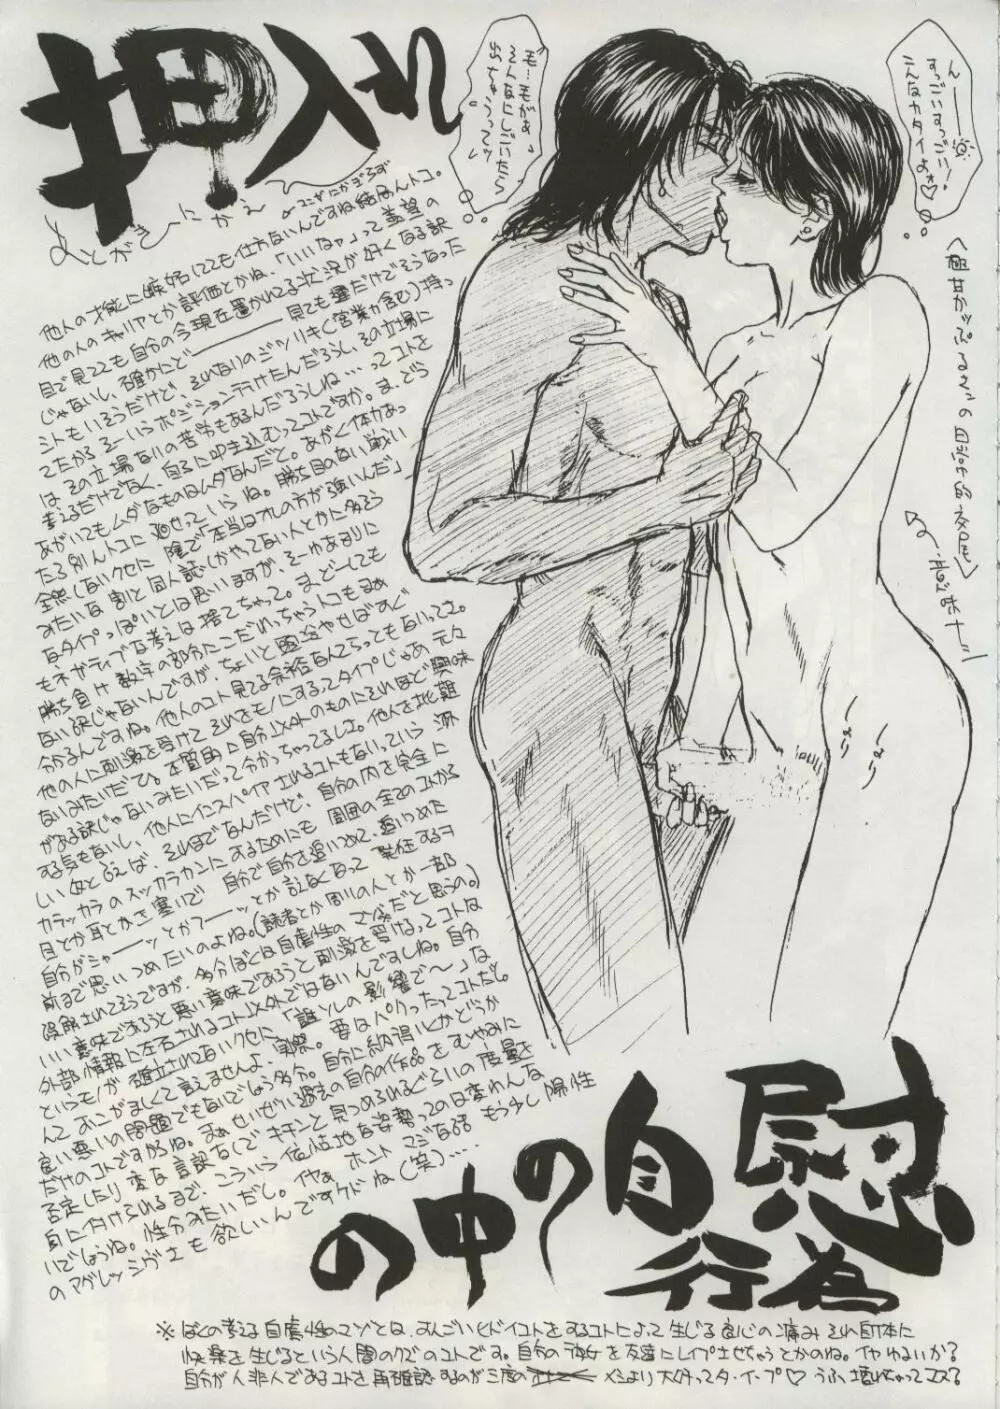 押入れ
の中の自慰
行為
あとがきーにかえ
他人の才能に嫉妬してても仕方ないんですね結局んトコ。
他の人のキャリアとか評価とかね、「いいなァ」って羨望の
目で見てても自分の今現在置かれてる状況が好くなる訳
じゃないし、確かにどーーー見ても運だけでそうなった
シトもいそうだけど、それなりのジツリキ(営業力含む)持っ
てたからそーいうポジションテラけたんだろうし、その立場に
は その立場なりの苦労もあるんだろうしね…ってコトを
考えるだけでなく、自らに叩き込むってコトですか。ま、どう
あがいてもムダなものはムダなんだと。あがく体力あっ
たら別んトコに廻せっていうね。勝ち目のない戦い
全然しないクセに 陰で「本当はオレの方が強いんだ」
みたいな 割と同人誌しかやってない人とかに多そう
なタイプっぽいとは思いますが、そーゆあまりに
もネガティブな考えは捨てちゃって。まーどーしても
勝ち負け 数字の部分にこだわっちゃうトコもまぁ
ない訳じゃないんですが、ちょいと頭冷やせばすぐ
分かるんですね。他人のコト見てる余裕なんてちっともないってさ。
他の人に刺激を受けて それをモノにするってタイプじゃあ 元々
ないみたいだし。本質的に自分以外のものにそれほど興味
がある訳じゃないみたいだって分かっちゃってるしさ。他人を批難
する気もないし、他人にインスパイアされるコトもないっていう 淋
しい奴と言えば、それまでなんだけど、自分の内を完全に
カラッカラのスッカラカンにするためにも 周囲の全てのコトから
目とか耳とかさ塞いで 自分で自分を追いつめて、追いつめた
自分がミャーーッとかフーーッとか言えなくなって 発狂するヲ
前まで思いつめたいのよね。(読者とか周りの人とか一部
誤解されてそうですが、多分ぼくは自虐性のマゾだと思うの。)
いい意味であろうと悪い意味であろうと刺激を受けるってコトは
外部情報に左右されるコト以外ではないんですしね。自分
というモノが確立されてないクセに「誰ソレの影響で〜」な
んておこがましくて言えませんよ、実際。要はパクったってコトだし
良い悪いの問題でもないでしょう多分。自分に納得いくかどうか
だけのコトですからね。まぁせいぜい過去の自分の作品をむやみに
否定したり 変な言訳なしで キチンと見つめれるぐらいの度量を
身に付けられるまで、こういう依怙地な姿勢ってのは変わんな
いでしょうね。性分みたいだし。イヤぁ ホント マジな話 もう少し 陽性
のアグレッシヴさも 欲しいんですケドね(笑)…
モ…モがぁ
そんなにしごいたら
出ちゃうってッ
んーーー
すっごいすっごい!
こんなカタイよォ♡
〈極甘かっぷるさんの日常的交尾〉
※ ぼくの考える自虐性のマゾとは、すんごいヒドイコトをするコトによって生じる良心の痛み それ自体に
快楽を生じるという人間のクズのコトです。自分の彼女を友達にレイプさせちゃうとかのね。イヤ わるいか?
自分が人非人であるコトを再確認するのが三度のメシより大好ってタ・イープ♡ うふ 壊れちゃってコス?